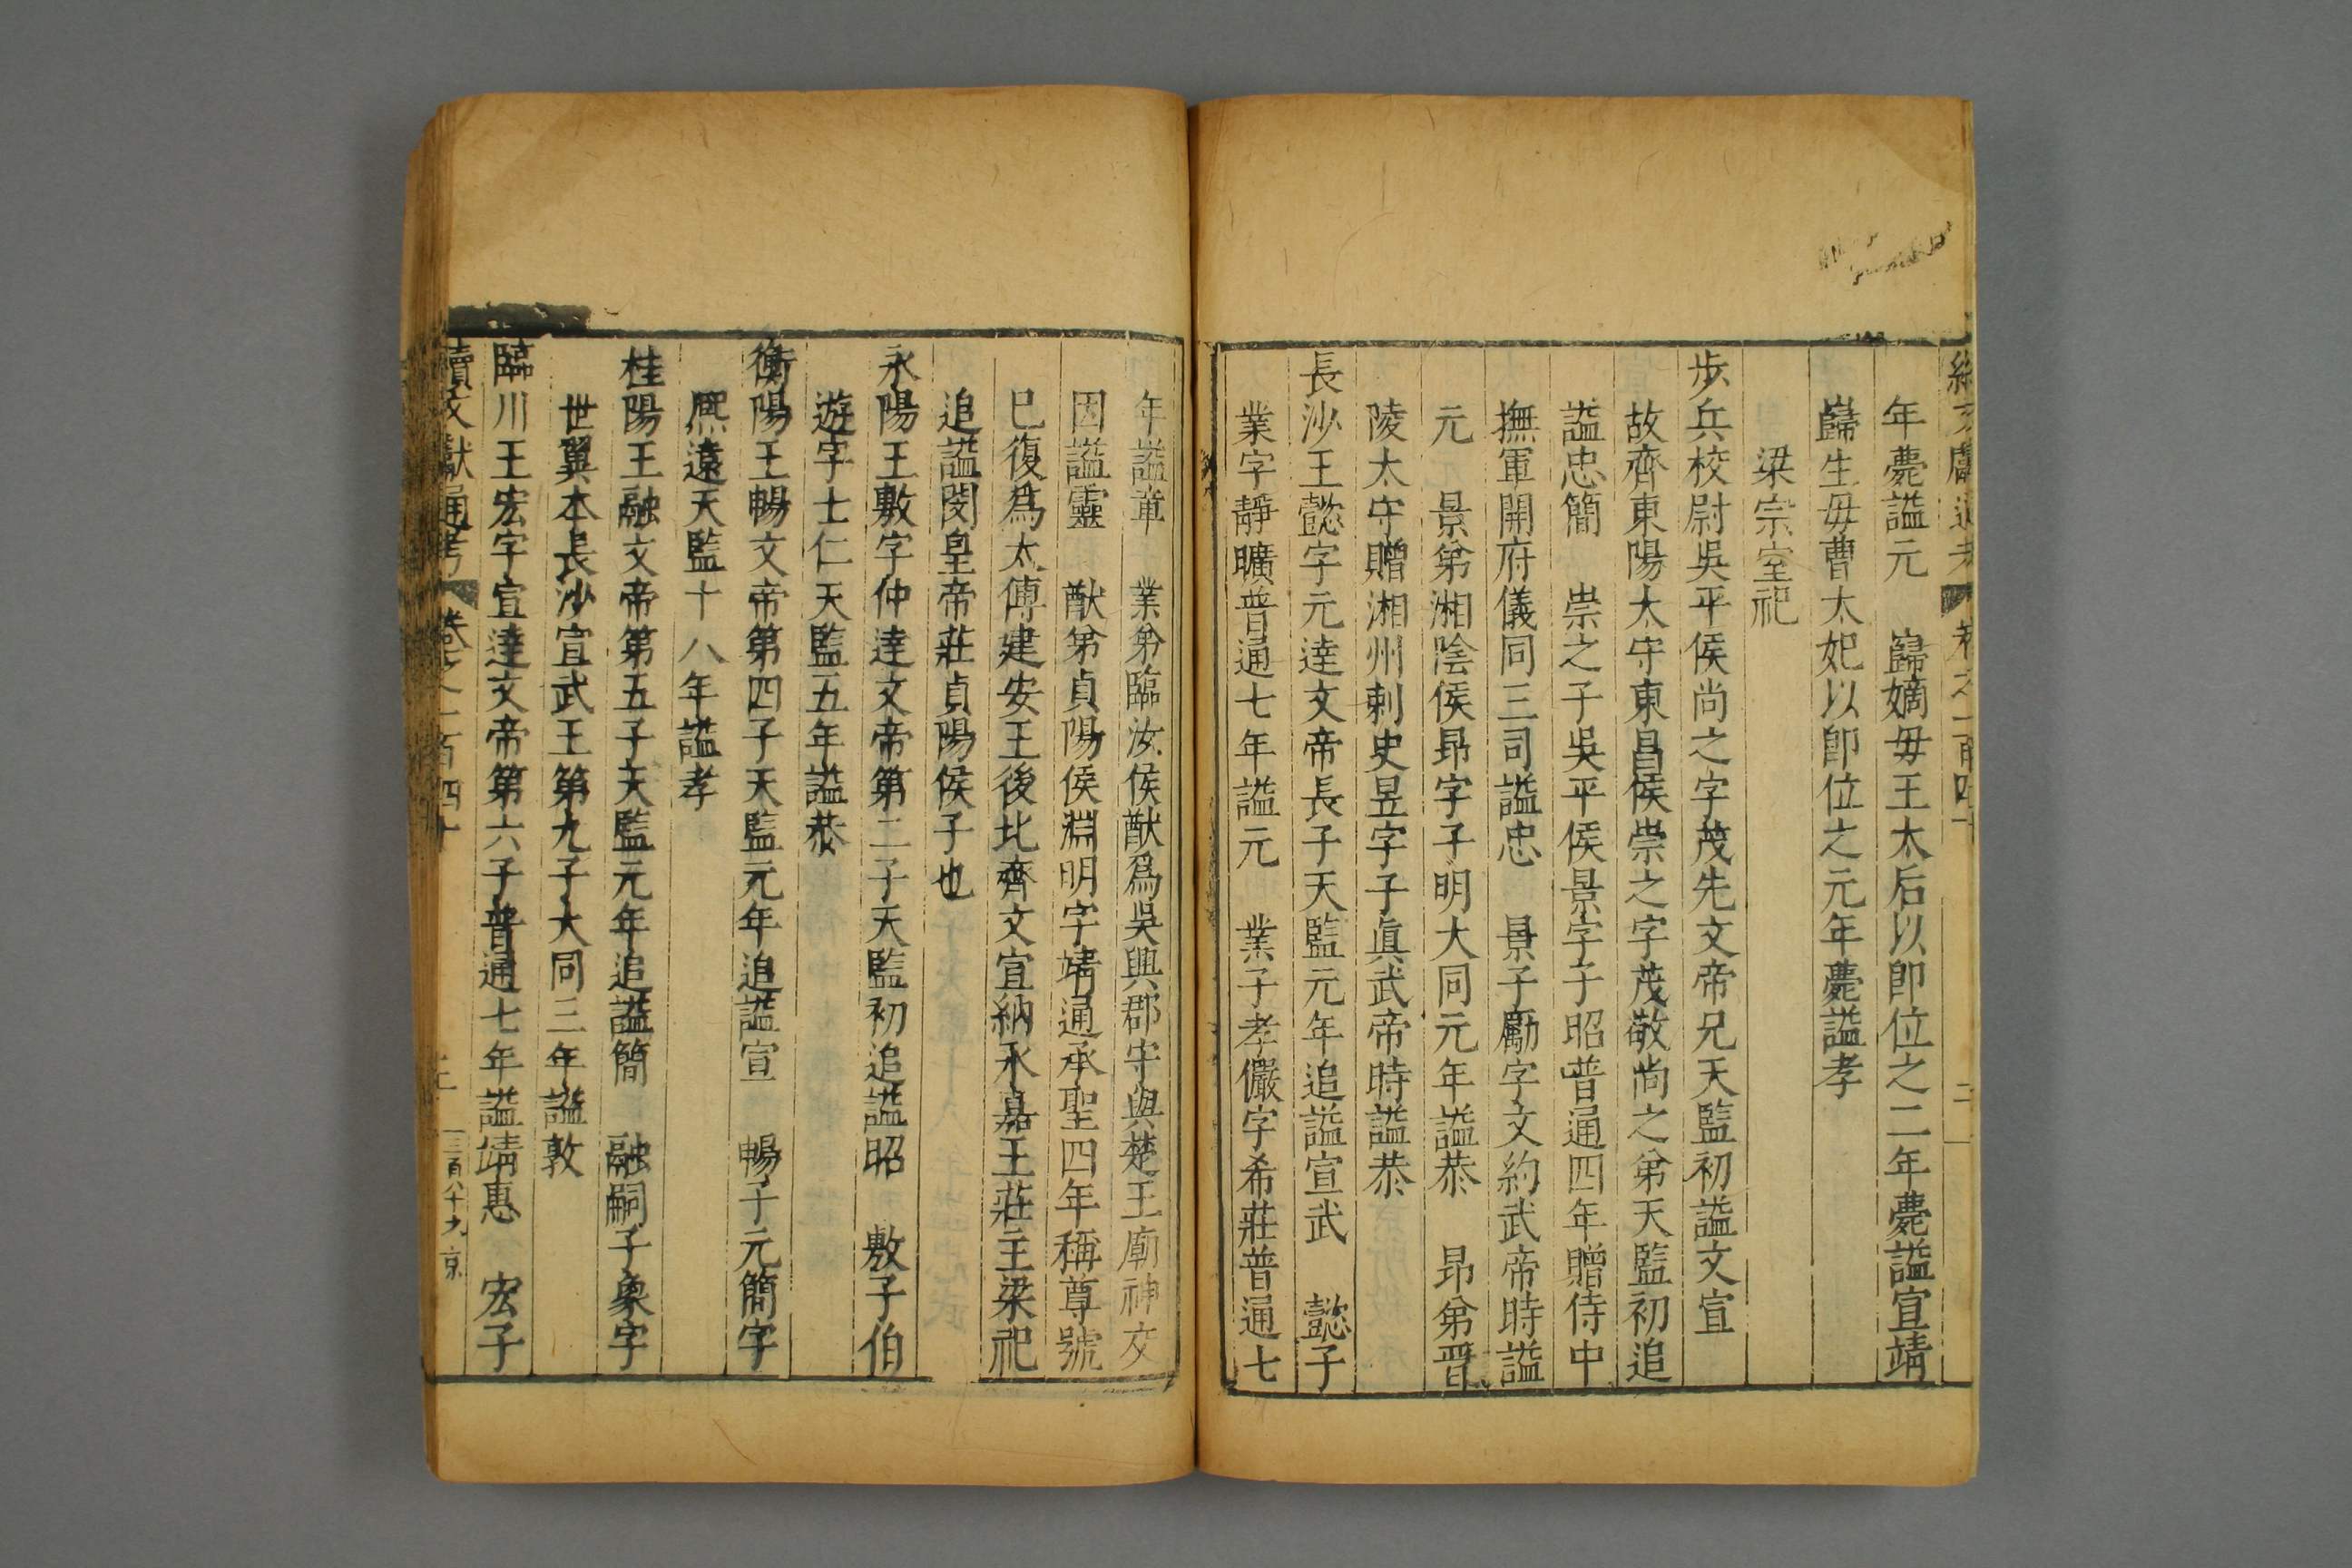 年薨謚元　巋嫡毋王太后以卽位之二年薨謚宣靖
巋生毋曹太妃以卽位之元年薨謚孝
梁宗室祀
步兵校尉吳平侯尚之字茂先文帝兄天監初謚文宣
故齊東陽太守東昌侯崇之字茂敬尚之弟天監初追
謚忠簡　崇之子吳平侯景字子昭普通四年贈侍中
撫軍開府儀同三司謚忠　景子勵字文約武帝時謚
元　景弟湘陰侯昻字子明大同元年謚恭　昻弟晉
陵太守贈湘州刺史昱字子眞武帝時謚恭
長沙王懿字元達文帝長子天監元年追謚宣武　懿子
業字靜曠普通七年謚元　業子孝儼字希莊普通七
年謚章　業弟臨汝侯猷爲吳興郡守與楚王廟神交
因謚靈　猷弟貞陽侯淵明字靖通承聖四年稱尊號
巳復爲太傅建安王後北齊文宣納永嘉王莊主梁祀
追謚閔皇帝莊貞陽侯子也
永陽王敷字仲達文帝第二子天監初追謚昭　敷子伯
遊字士仁天監五年謚恭
衡陽王暢文帝第四子天監元年追謚宣　暢子元簡字
熈遠天監十八年謚孝
桂陽王融文帝第五子天監元年追謚簡　融嗣子象字
世翼本長沙宣武王第九子大同三年謚敦
臨川王宏字宣達文帝第六子普通七年謚靖惠　宏子
續文獻通考　卷之一百四十　三百八十九　京